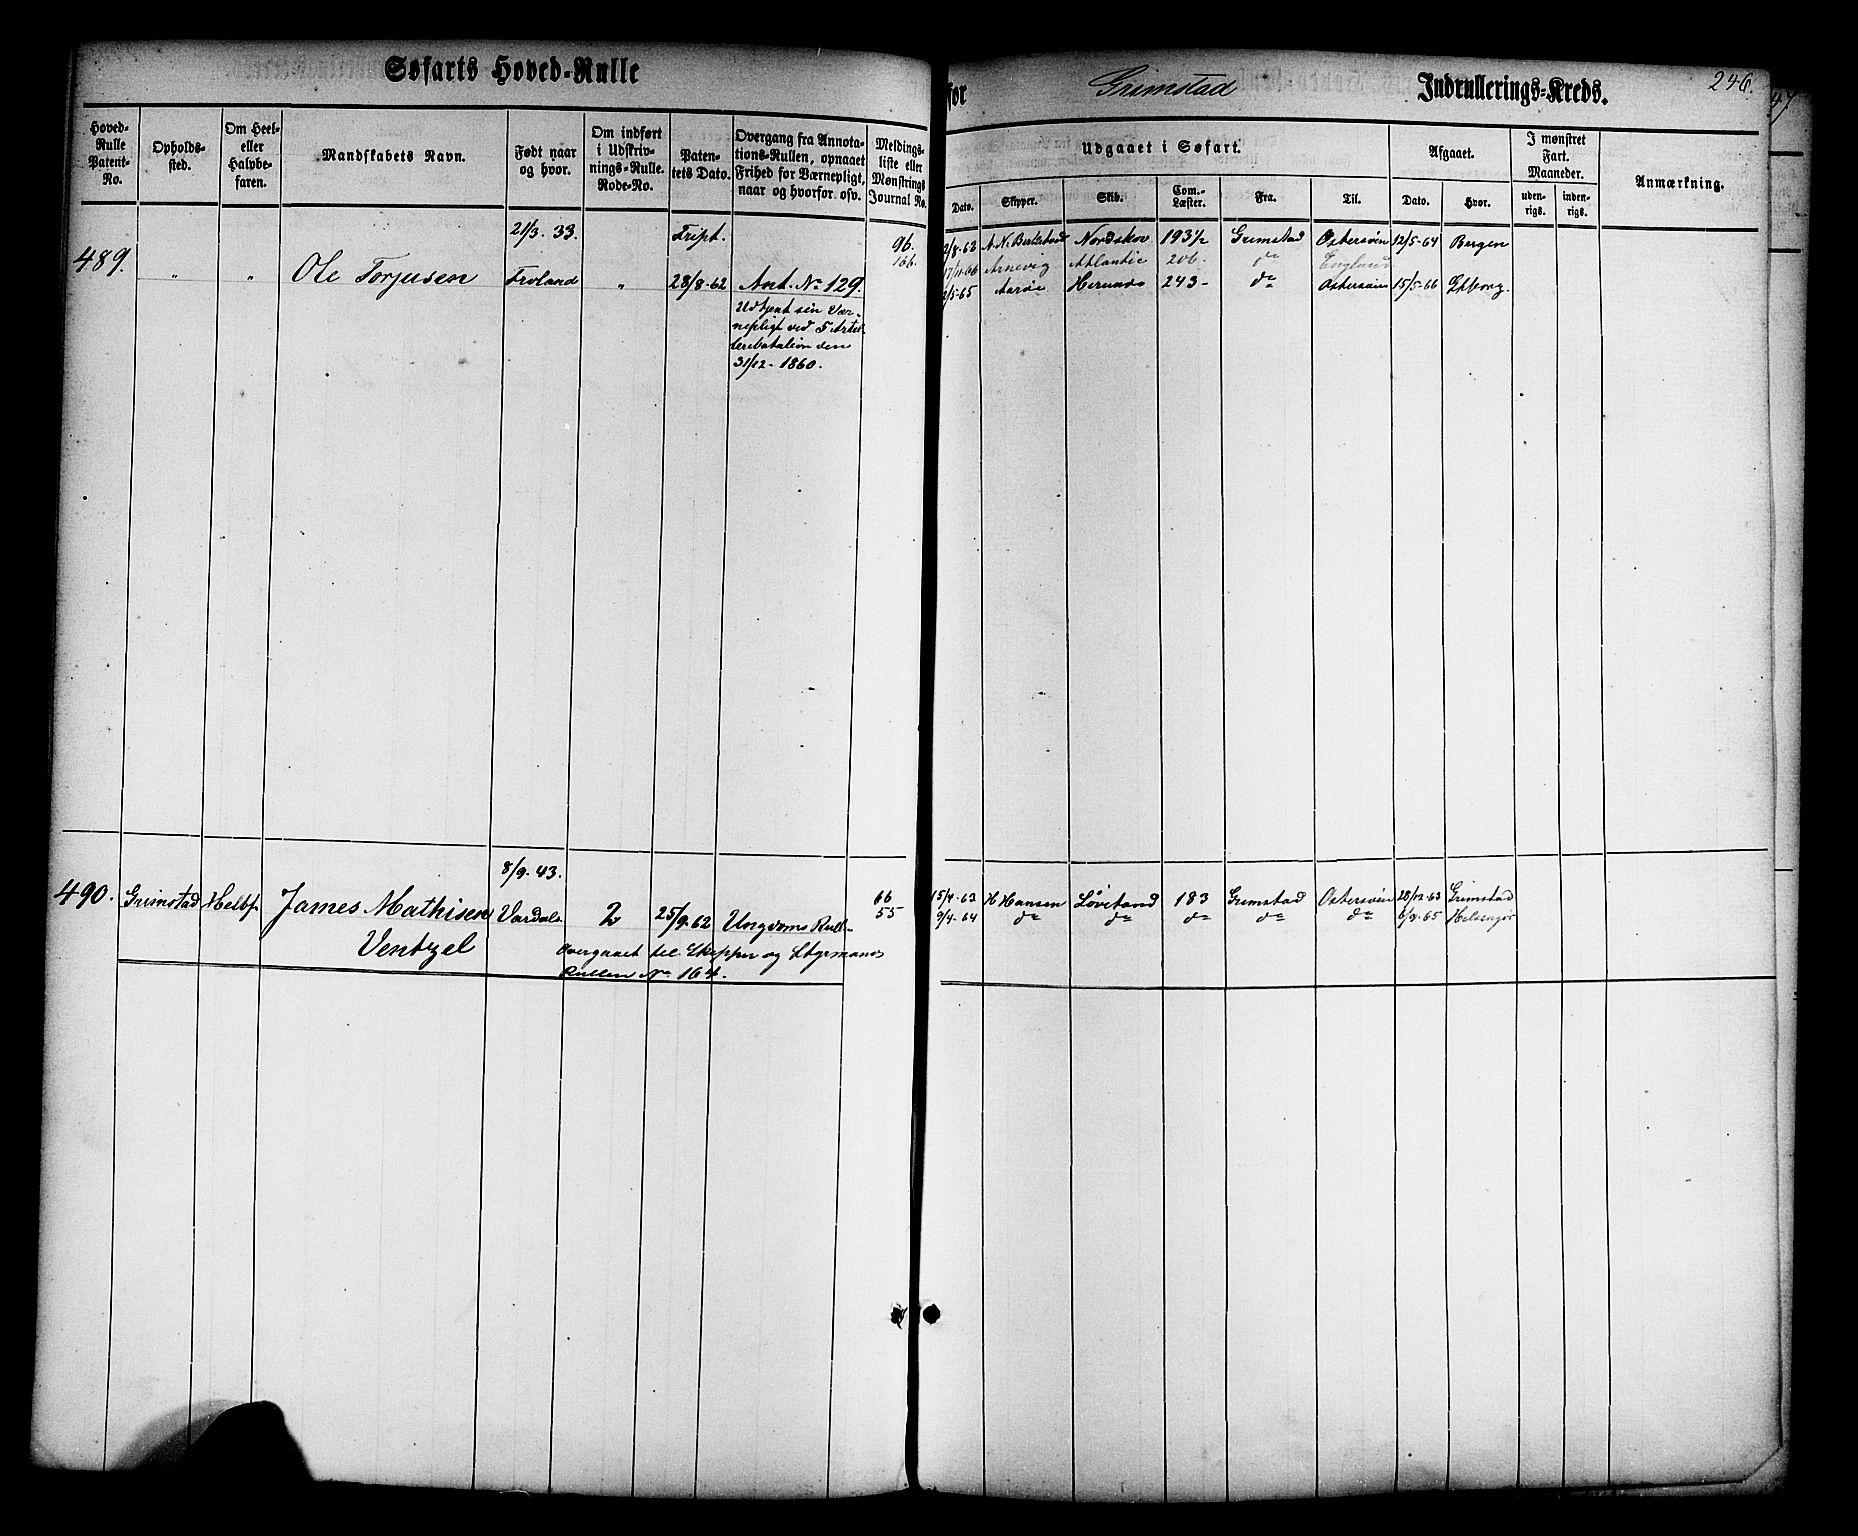 Søfarts Hoved-Rulle
for Grimstad Indrullerings-Kreds.
246.
47
Hoved-
Rulle
Patent-
No.
Opholds-
sted.
Om Heel-
eller
Halvbe-
faren.
Mandskabets Navn.
Født naar
og hvor.
Om indført
i Udskriv-
nings-Rulle.
Rode-No.
Paten-
tets Dato.
Overgang fra Annota-
tions-Rullen, opnaaet
Frihed for Værnepligt,
naar og hvorfor osv.
Meldings-
liste eller
Mønstrings
Journal No.
Udgaaet i Søfart.
Dato.
Skipper.
Skib.
Com.-
Læster.
Fra.
Til.
Afgaaet.
Dato.
Hvor.
I mønstret
Fart.
Maaneder.
uden-
rigs.
inden-
rigs.
Anmærkning.
489. " " Ole Torjusen
21/3. 33.
Froland " Fript.
28/8-62 Ant. No 129.
Udtjent sin Vær-
nepligt ved 5 Artil-
leribatalion den
31/12- 1860.
96.
166.
2/8-62 Nordskov 193½ Grimstad Østersøen 12/5-64 Bergen
17/11-66 Arnevig Atlantic 206. do England
2/5-65 Aarøe 243- do Østersøen 15/5-66
490. Grimstad Helbf. James Mathisen
Ventzel
8/9. 43.
Vardal 2 25/9-62 Ungdoms Rull-
Overgaaet til Skipper og Styrmands
Rullen No 164.
66
55
15/9-63 H Hansen Løvstand 183 Grimstad Østersøen 28/12-63 Grimstad
9/4-64 do do do do do 6/9-65 Helsingør